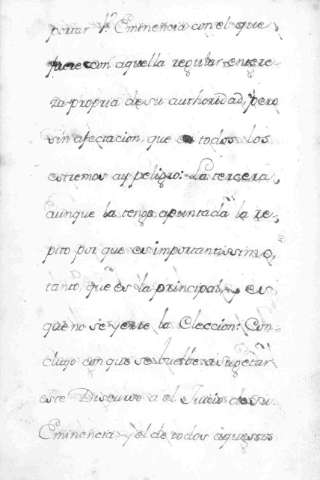 portar V.ª Eminencia con el que
fuere con aquella regular entere
za propria de su authoridad, pero
sin afectacion, que en todos los
estremos ay peligro: La tercera,
aunque la tengo apuntada la re
pito por que es importantissimo,
tanto, que es la principal, y es
que no se yerre la Eleccion: Con
cluyo con que se buelbe a sugetar
este Discurso a el Juicio de su
Eminencia y el de todos aquestos